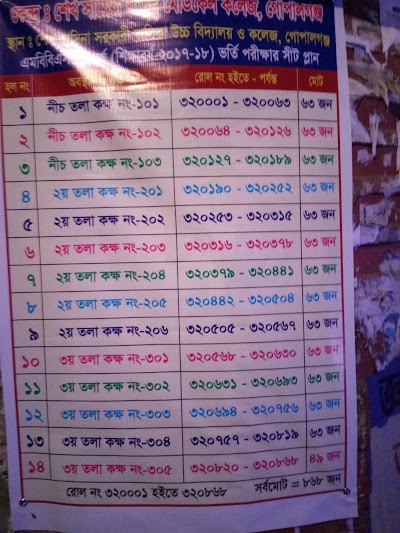 কেন্দ্র ঃ শেখ সায়েরা মেডিকেল কলেজ, গোপালগঞ্জ
স্থান ঃ শেখ হাসিনা সরকারী বালিকা উচ্চ বিদ্যালয় ও কলেজ, গোপালগঞ্জ
এমবিবিএস (শিক্ষাবর্ষ-২০১৭-১৮) ভর্তি পরীক্ষার সীট প্লান
হল নং অবস্থান রোল নং হইতে - পর্যন্ত মোট
১ নীচ তলা কক্ষ নং-১০১ ৩২০০০১ - ৩২০০৬৩ ৬৩ জন
২ নীচ তলা কক্ষ নং-১০২ ৩২০০৬৪ - ৩২০১২৬ ৬৩ জন
৩ নীচ তলা কক্ষ নং-১০৩ ৩২০১২৭ - ৩২০১৮৯ ৬৩ জন
৪ ২য় তলা কক্ষ নং-২০১ ৩২০১৯০ - ৩২০২৫২ ৬৩ জন
৫ ২য় তলা কক্ষ নং-২০২ ৩২০২৫৩ - ৩২০৩১৫ ৬৩ জন
৬ ২য় তলা কক্ষ নং-২০৩ ৩২০৩১৬ - ৩২০৩৭৮ ৬৩ জন
৭ ২য় তলা কক্ষ নং-২০৪ ৩২০৩৭৯ - ৩২০৪৪১ ৬৩ জন
৮ ২য় তলা কক্ষ নং-২০৫ ৩২০৪৪২ - ৩২০৫০৪ ৬৩ জন
৯ ২য় তলা কক্ষ নং-২০৬ ৩২০৫০৫ - ৩২০৫৬৭ ৬৩ জন
১০ ৩য় তলা কক্ষ নং-৩০১ ৩২০৫৬৮ - ৩২০৬৩০ ৬৩ জন
১১ ৩য় তলা কক্ষ নং-৩০২ ৩২০৬৩১ - ৩২০৬৯৩ ৬৩ জন
১২ ৩য় তলা কক্ষ নং-৩০৩ ৩২০৬৯৪ - ৩২০৭৫৬ ৬৩ জন
১৩ ৩য় তলা কক্ষ নং-৩০৪ ৩২০৭৫৭ - ৩২০৮১৯ ৬৩ জন
১৪ ৩য় তলা কক্ষ নং-৩০৫ ৩২০৮২০ - ৩২০৮৬৮ ৪৯ জন
রোল নং ৩২০০০১ হইতে ৩২০৮৬৮ সর্বমোট = ৮৬৮ জন